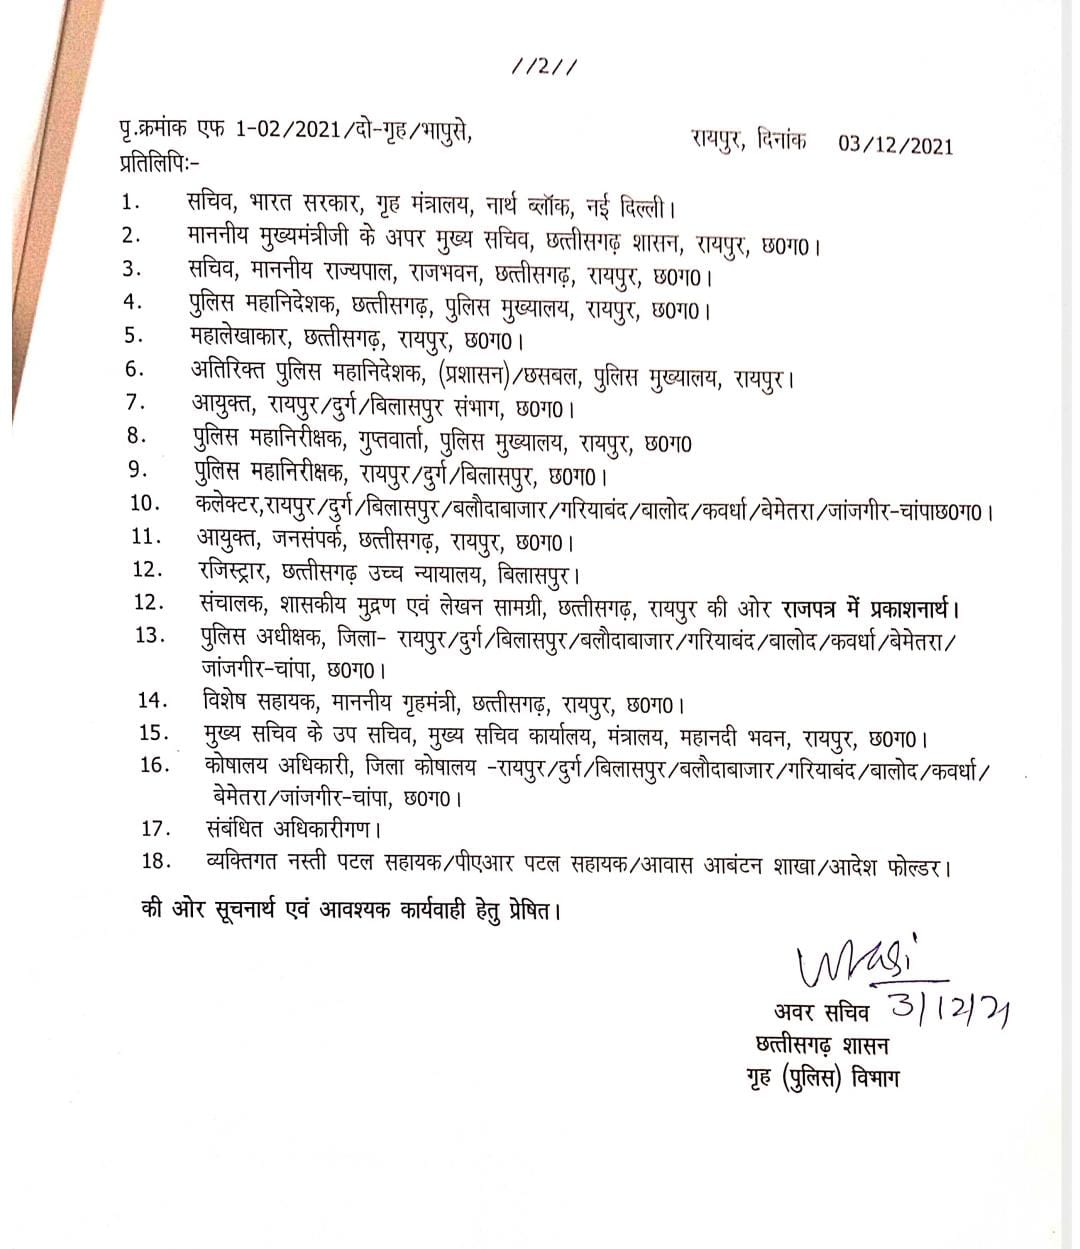 //2//
पृ.क्रमांक एफ 1-02/2021/दो-गृह/भापुसे,
रायपुर, दिनांक 03/12/2021
प्रतिलिपिः-
1. सचिव, भारत सरकार, गृह मंत्रालय, नार्थ ब्लॉक, नई दिल्ली।
2. माननीय मुख्यमंत्रीजी के अपर मुख्य सचिव, छत्तीसगढ़ शासन, रायपुर, छ0ग0।
3. सचिव, माननीय राज्यपाल, राजभवन, छत्तीसगढ़, रायपुर, छ0ग0।
4. पुलिस महानिदेशक, छत्तीसगढ़, पुलिस मुख्यालय, रायपुर, छ0ग0।
5. महालेखाकार, छत्तीसगढ़, रायपुर, छ0ग0।
6. अतिरिक्त पुलिस महानिदेशक, (प्रशासन)/छसबल, पुलिस मुख्यालय, रायपुर।
7. आयुक्त, रायपुर/दुर्ग/बिलासपुर संभाग, छ0ग0।
8. पुलिस महानिरीक्षक, गुप्तवार्ता, पुलिस मुख्यालय, रायपुर, छ0ग0
9. पुलिस महानिरीक्षक, रायपुर/दुर्ग/बिलासपुर, छ0ग0।
10. कलेक्टर,रायपुर/दुर्ग/बिलासपुर/बलौदाबाजार/गरियाबंद/बालोद/कवर्धा/बेमेतरा/जांजगीर-चांपाछ0ग0।
11. आयुक्त, जनसंपर्क, छत्तीसगढ़, रायपुर, छ0ग0।
12. रजिस्ट्रार, छत्तीसगढ़ उच्च न्यायालय, बिलासपुर।
12. संचालक, शासकीय मुद्रण एवं लेखन सामग्री, छत्तीसगढ़, रायपुर की ओर राजपत्र में प्रकाशनार्थ।
13. पुलिस अधीक्षक, जिला- रायपुर/दुर्ग/बिलासपुर/बलौदाबाजार/गरियाबंद/बालोद/कवर्धा/बेमेतरा/
जांजगीर-चांपा, छ0ग0।
14. विशेष सहायक, माननीय गृहमंत्री, छत्तीसगढ़, रायपुर, छ0ग0।
15. मुख्य सचिव के उप सचिव, मुख्य सचिव कार्यालय, मंत्रालय, महानदी भवन, रायपुर, छ0ग0।
16. कोषालय अधिकारी, जिला कोषालय -रायपुर/दुर्ग/बिलासपुर/बलौदाबाजार/गरियाबंद/बालोद/कवर्धा/
बेमेतरा/जांजगीर-चांपा, छ0ग0।
17. संबंधित अधिकारीगण।
18. व्यक्तिगत नस्ती पटल सहायक/पीएआर पटल सहायक/आवास आबंटन शाखा/आदेश फोल्डर।
की ओर सूचनार्थ एवं आवश्यक कार्यवाही हेतु प्रेषित।
अवर सचिव 3/12/21
छत्तीसगढ़ शासन
गृह (पुलिस) विभाग